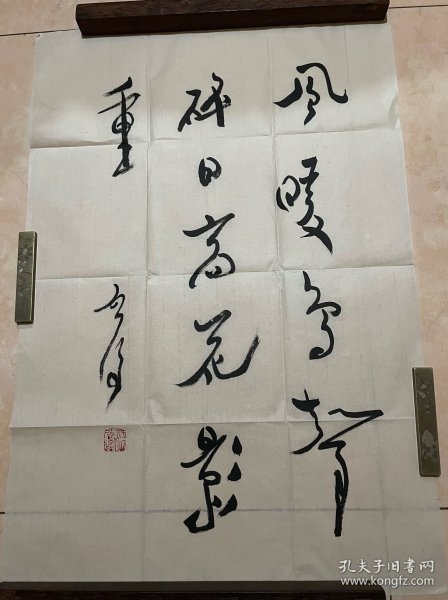 風暖鸟聲
碎日高花
影
重
孔夫子旧书网
www.kongfz.com